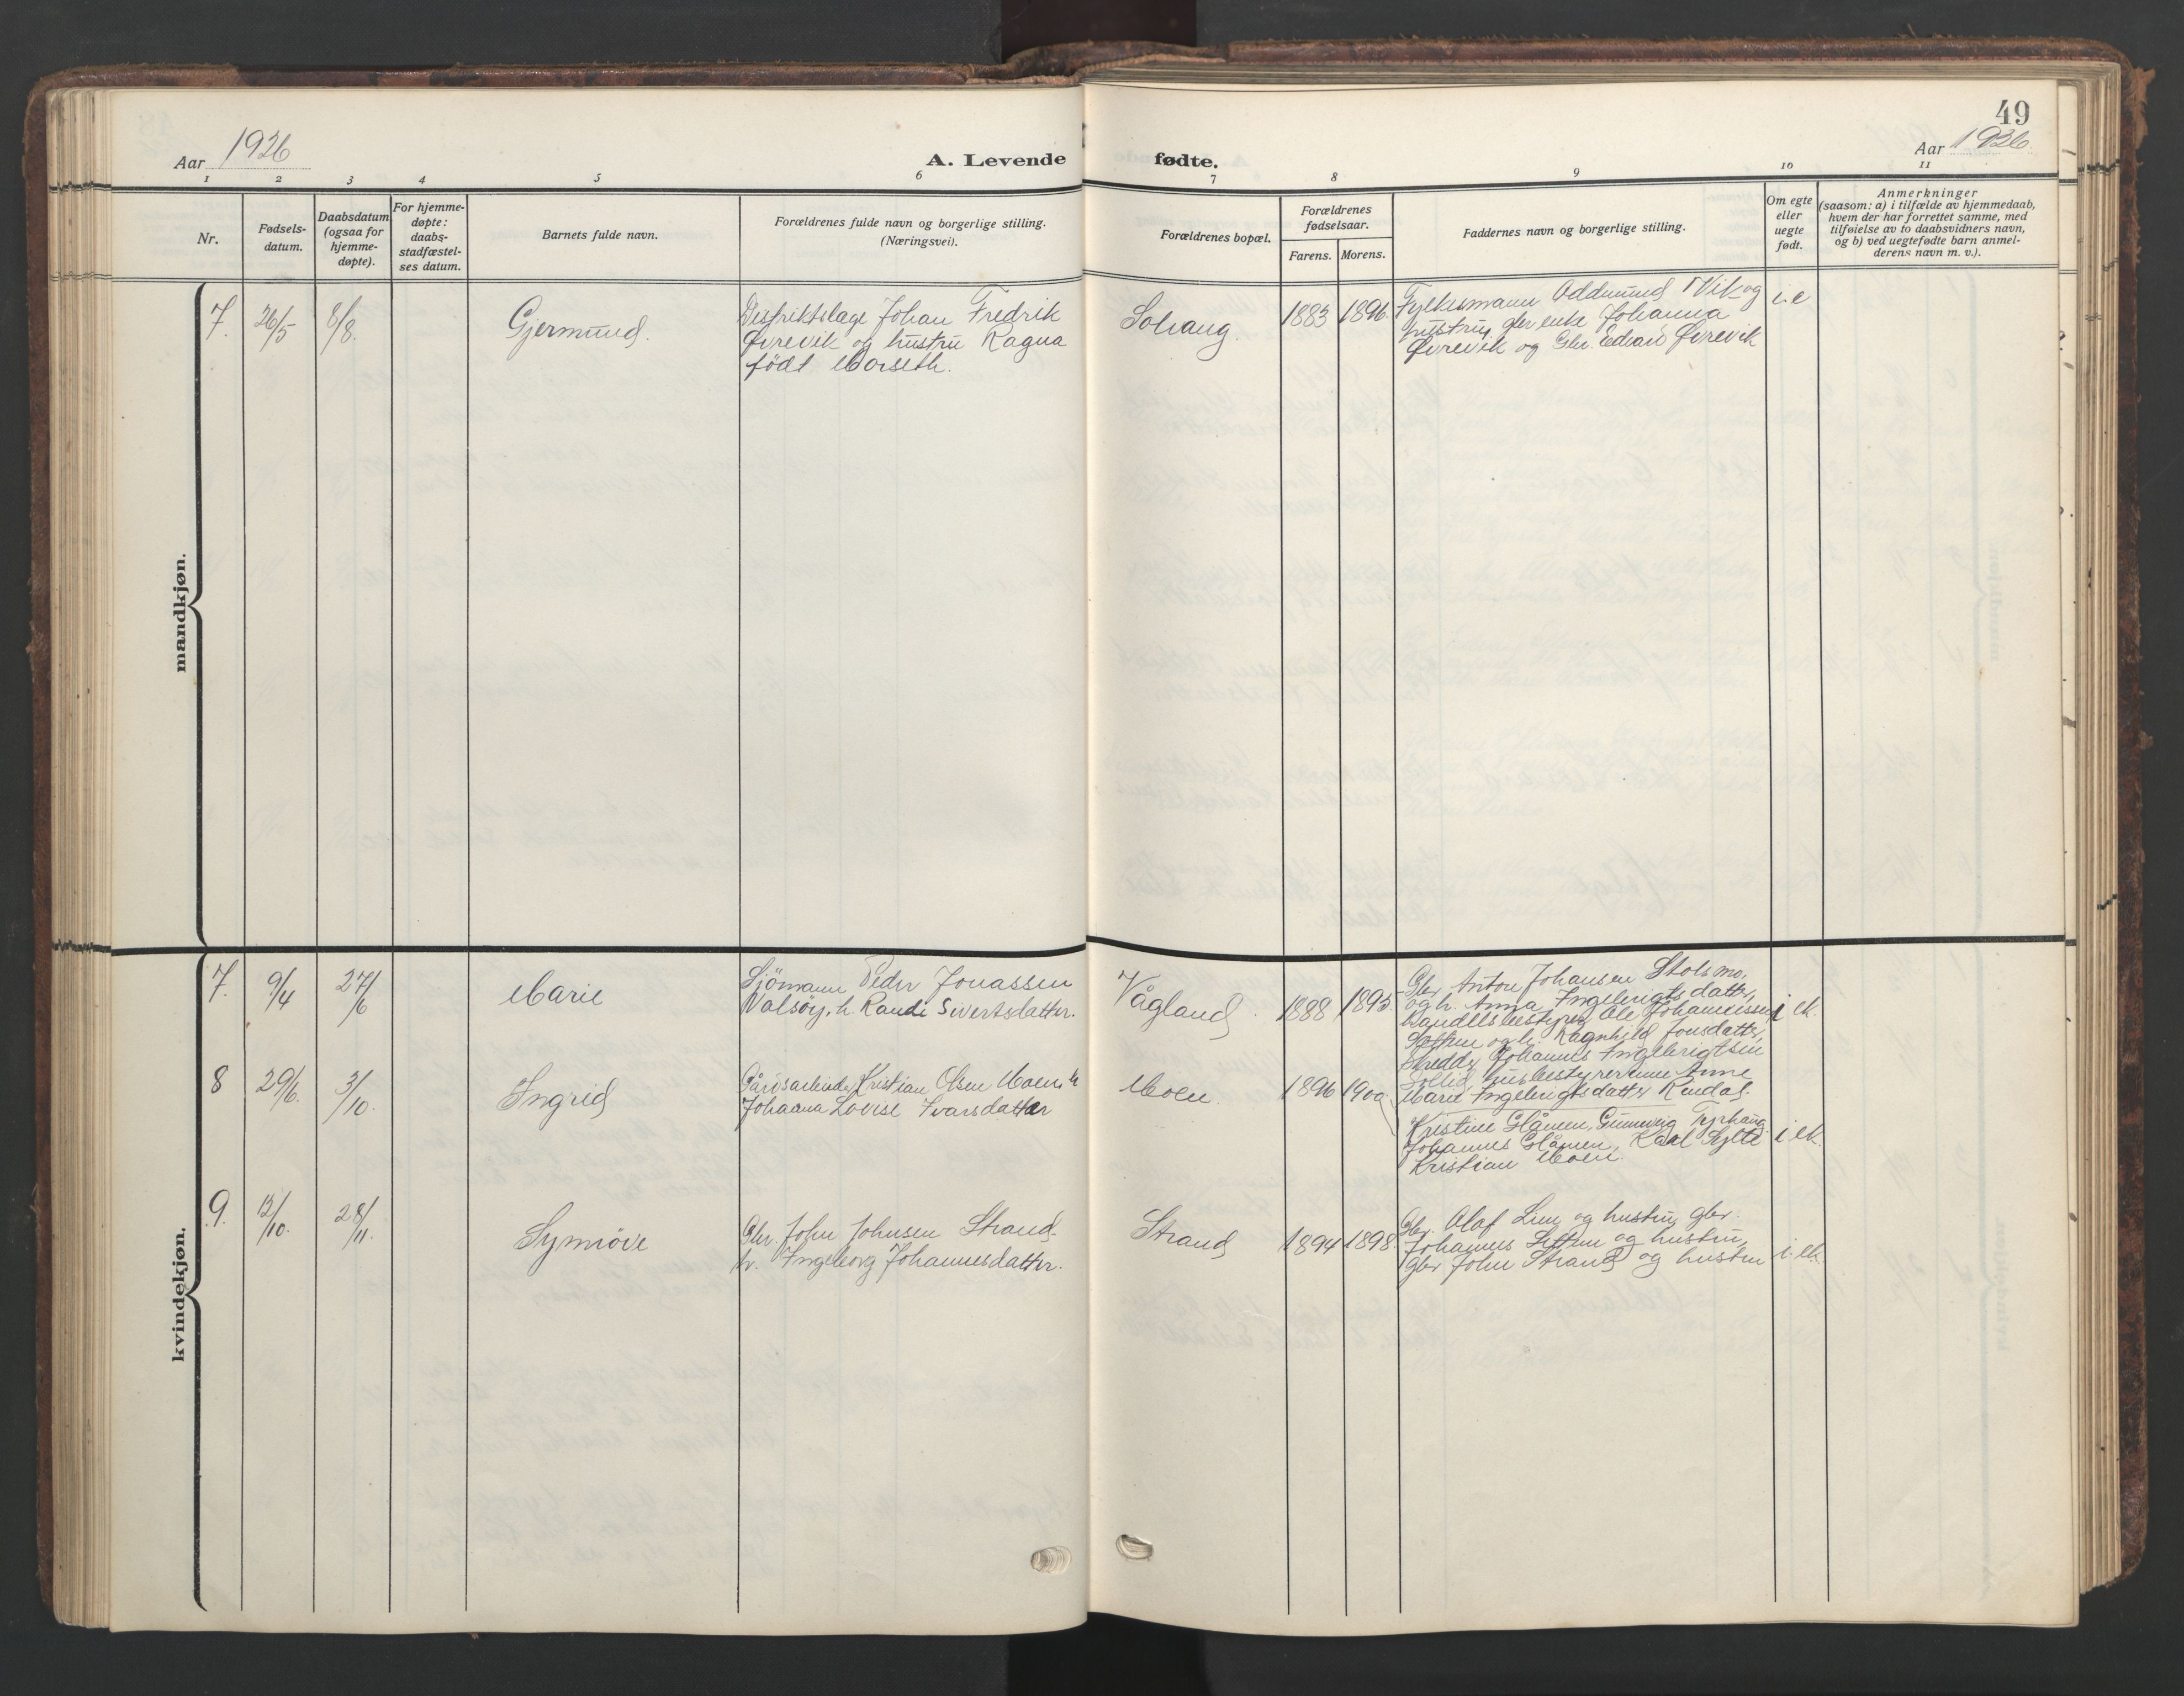 49
Aar 1926
A. Levende fødte.
Aar 1926
1 2 3 4 5 6 7 8 9 10 11
Nr.
Fødsels-
datum.
Daabsdatum
(ogsaa for
hjemme-
døpte).
For hjemme-
døpte:
daabs-
stadfæstel-
ses datum.
Barnets fulde navn.
Forældrenes fulde navn og borgerlige stilling.
(Næringsvei).
Forældrenes bopæl.
Forældrenes
fødselsaar.
Farens. Morens.
Faddernes navn og borgerlige stilling.
Om egte
eller
uegte
født.
Anmerkninger
(saasom: a) i tilfælde av hjemmedaab,
hvem der har forrettet samme, med
tilføielse av to daabsvidners navn,
og b) ved uegtefødte barn anmel-
derens navn m. v.).
mandkjøn.
7. 26/5 8/8. Gjermund.
Distriktslæge Johan Fredrik
Øvrevik og hustru Ragna
født Morseth.
Solhaug. 1883 1896.
Fylkesmann Oddmund Vik og
hustru, gbr enke Johanna
Øvrevik og Gbr. Edvard Øvrevik
i. e
kvindekjøn.
7. 9/4 27/6 Marie
Sjömann Peder Jonassen
Valsöy, h. Randi Sivertsdatter.
Vågland. 1888 1895.
Gbr Anton Johansen Stolsmo,
og h. Anna Ingebrigtsdatter,
Handelsbestyrer Ole Johannessen
og h. Ragnhild Jonsdatter,
Johannes Ingebrigtsen
Sollid, husbestyrerinne Anne
Marie Ingebrigtsdatter Rindal.
i ek.
8 29/6. 3/10. Ingrid
Gårdsarbeider Kristian Olsen Moen, h
Johanna Lovise Ivarsdatter
Moen. 1896 1900.
Kristine Glåmen, Gunnvig Tyrhaug,
Johannes Glåmen, Karl Sylte
Kristian Moen.
i ek.
9. 12/10. 28/11. Synnöve
Gbr. John Johnsen Strand.
h. Ingeborg Johannesdatter.
Strand 1894 1898.
Gbr. Olaf Lien og hustru, gbr.
Johannes Settem og hustru,
gbr John Strand og hustru
i. ek.